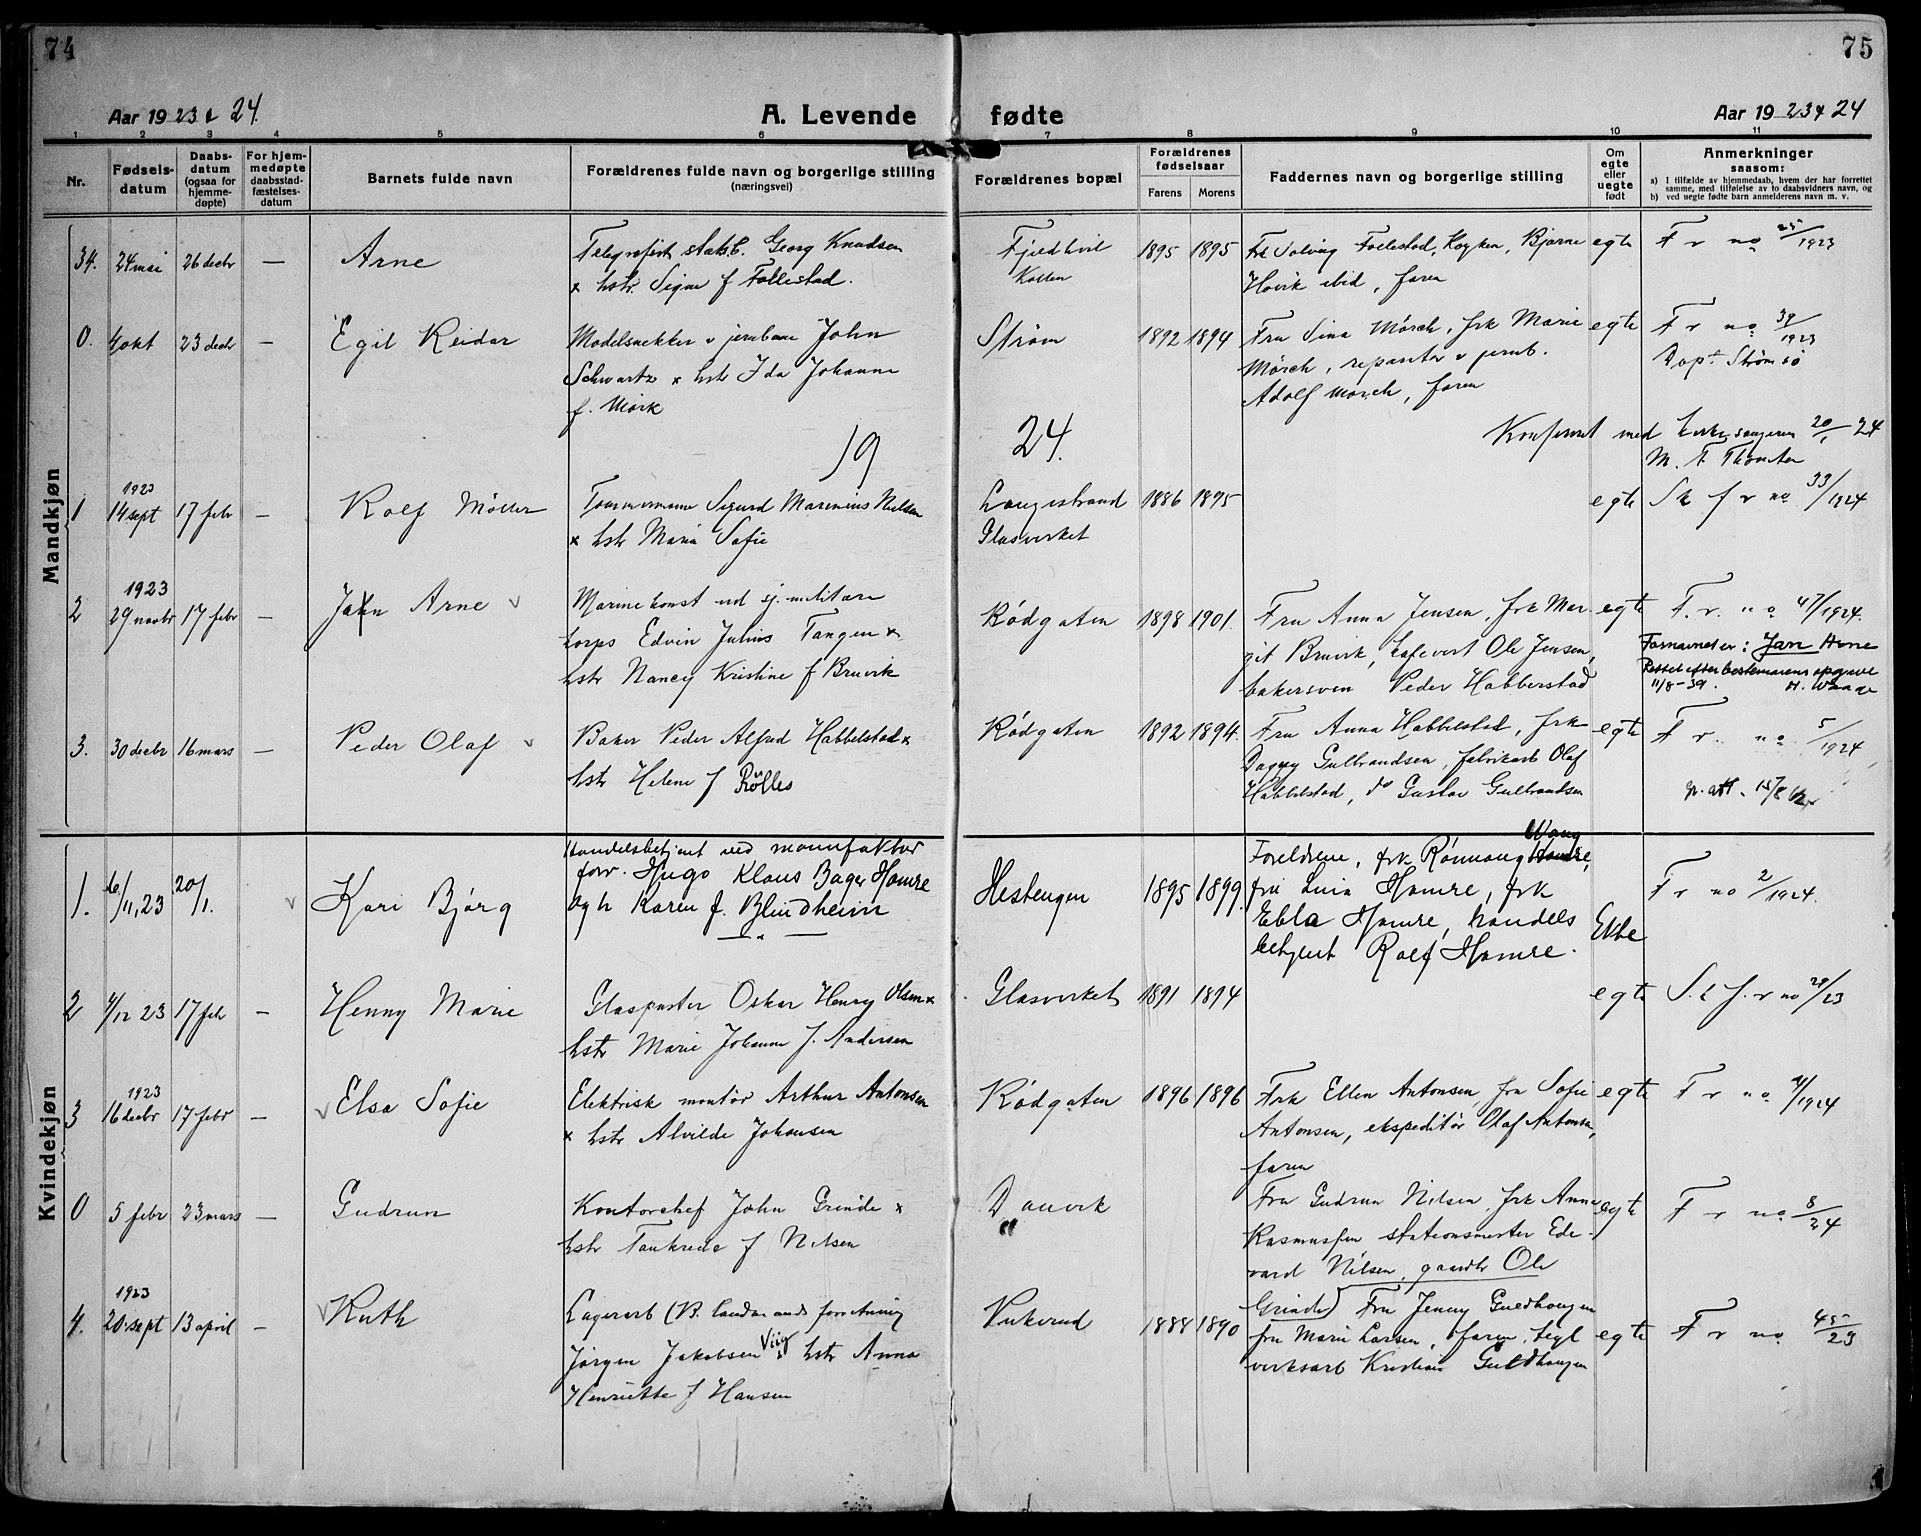 74
75
Aar 1923 & 24.
A. Levende fødte
Aar 1923 & 24
1 2 3 4 5 6 7 8 9 10 11
Nr.
Fødsels-
datum
Daabs-
datum
(ogsaa for
hjemme-
døpte)
For hjem-
medøpte
daabsstad-
fæstelses-
datum
Barnets fulde navn
Forældrenes fulde navn og borgerlige stilling
(næringsvei)
Forældrenes bopæl
Forældrenes
fødselsaar
Farens Morens
Faddernes navn og borgerlige stilling
Om
egte
eller
uegte
født
Anmerkninger
saasom:
a) I tilfælde av hjemmedaab, hvem der har forrettet
samme, med tilføielse av to daabsvidners navn, og
b) ved uegte fødte barn anmelderens navn m. v.
Mandkjøn
34. 24 mai 26 decbr — Arne
Telegrafist statsb. Georg Knudsen
x hstr. Signe f Follestad.
Fjeldhvil
Kollen
1895 1895
Frk Solvieg Follestad, Røyken, Bjarne
Høvik ibid, faren
egte
F r no 25/1923
0. 4 okt 23 decbr — Egil Reidar
Modelsnekker v jernbane John
Schwartz x hstr Ida Johanne
f. Mørk
Strøm
1892 1894
Fru Sina Mørch, frk Marie
Mørch, reparatør v jernb.
Adolf Mørch, faren
egte
F r no 39/1923
Døpt Strømsø
1924.
Konferert med kirkesangeren 20/1 24
1 1923
14 sept 17 febr — Rolf Møller
Tømmermann Sigurd Marinius Nielsen
x hstr Maria Sofie
Langestrand
Glasverket
1886 1895
egte
Sk f r no 33/1924
2 1923
29 novbr 17 febr — Jahn Arne
Marinekonst ved sj. militære
korps Edvin Julius Tangen x
hstr Nancy Kristine f Bruvik
Rødgaten
1898 1901.
Fru Anna Jensen, frk Mar-
git Bruvik, kafevert Ole Jensen,
bakersven Peder Habberstad
egte
F. r. no 47/1924.
Fornavnet er: Jan Arne
Rettet efter bestemorens opgave
11/8-39. H. Waage
3. 30 decbr 16 mars — Peder Olaf
Baker Peder Alfred Habbelstad x
hstr Helene f Rølles
Rødgaten
1892 1894.
Fru Anna Habbelstad, frk
Dagny Gulbrandsen, fabrikarb Olaf
Habbelstad, do Gustav Gulbrandsen
egte
F r. no. 5/1924
Kvindekjøn
1. 6/11, 23 20/1. Kari Bjørg
Handelsbetjent ved manufaktur
forr. Hugo Klaus Bager Homre
og h Karen f. Blindheim
Hestengen
1895 1899.
Foreldrene, frk Rønnaug Wang
fru Luia Homre, frk
Ebla Homre, handels
betjent Rolf Homre.
Ekte
F r no 2/1924.
2 4/12 23 17 feb — Henny Marie
Glaspuster Oskar Henry Olsen x
hstr Marie Johanne f. Andersen
Glasverket
1891 1894
egte
S. k f. r no 29/23
3 1923
16 decbr 17 febr — Elsa Sofie
Elektrisk montør Arthur Antonsen
x hstr Alvilde Johansen
Rødgaten
1896 1896
Frk Ellen Antonsen, fru Sofie
Antonsen, ekspeditør Olaf Antonsen,
faren
egte
F r no 4/1924
0 5 febr 23 mars — Gudrun
Kontorchef John Grinde x
hstr Tankrede f Nilsen
Danvik
Fru Gudrun Nilsen, frk Anna
Rasmussen stationsmester Ede-
vard Nilsen, gaardbr Ole
Grinde)
egte
F r no 8/24
4. 1923
20 sept 13 april — Ruth
Lagerarb (B. Landmands forretning
Jørgen Jakobsen Viig x hstr Anna
Henriette f Hansen
Vukerud
1888 1890
Fru Jenny Guldhaugen
fru Marie Larsen, faren, tegl
verksarb Kristian Guldhaugen
egte
F r no. 45/23